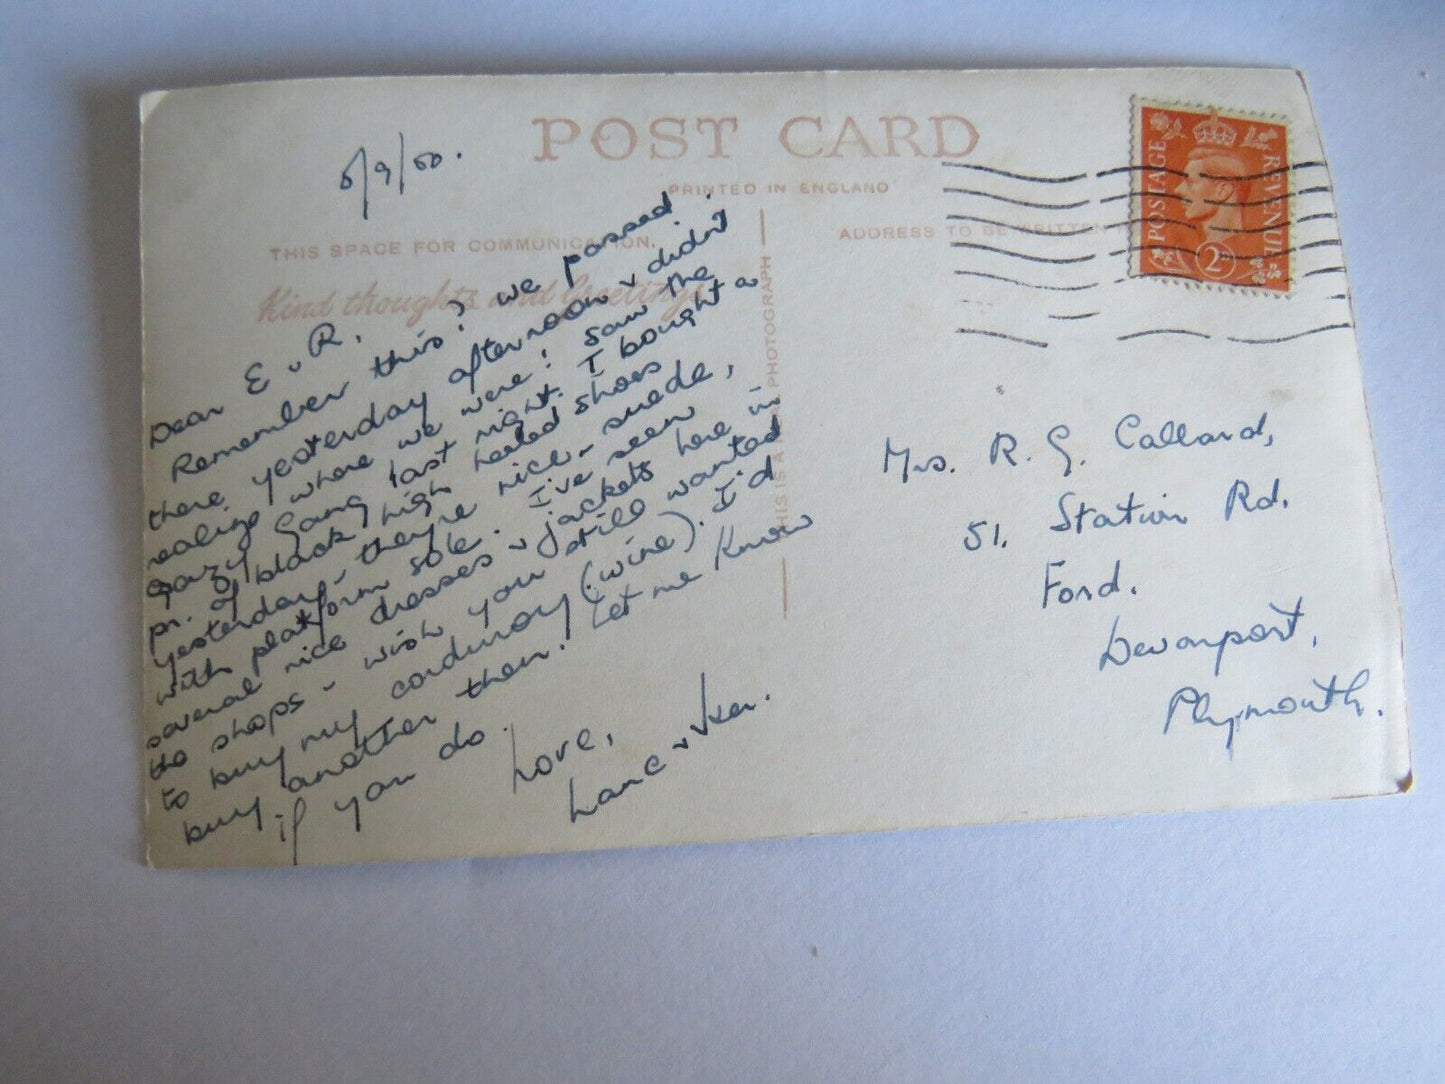 POST CARD
PRINTED IN ENGLAND
THIS SPACE FOR COMMUNICATION.
ADDRESS TO BE WRITTEN
Kind thoughts and Greetings
THIS IS A PHOTOGRAPH
POSTAGE
REVENUE
2D
/9/50.
Dear E & R.
Remember this? we passed
there yesterday afternoon & didn't
realize where we were! Saw the
Crazy Gang last night. I bought a
pr. of black high heeled shoes
yesterday - they're nice - suede,
with platform sole. I've seen
several nice dresses & jackets here in
the shops - wish you still wanted
to buy my corduroy (wine). I'd
buy another then! Let me know
if you do.
Love,
Lane & Ken.
Mrs. R. G. Callard,
51. Station Rd.
Ford.
Devonport,
Plymouth.